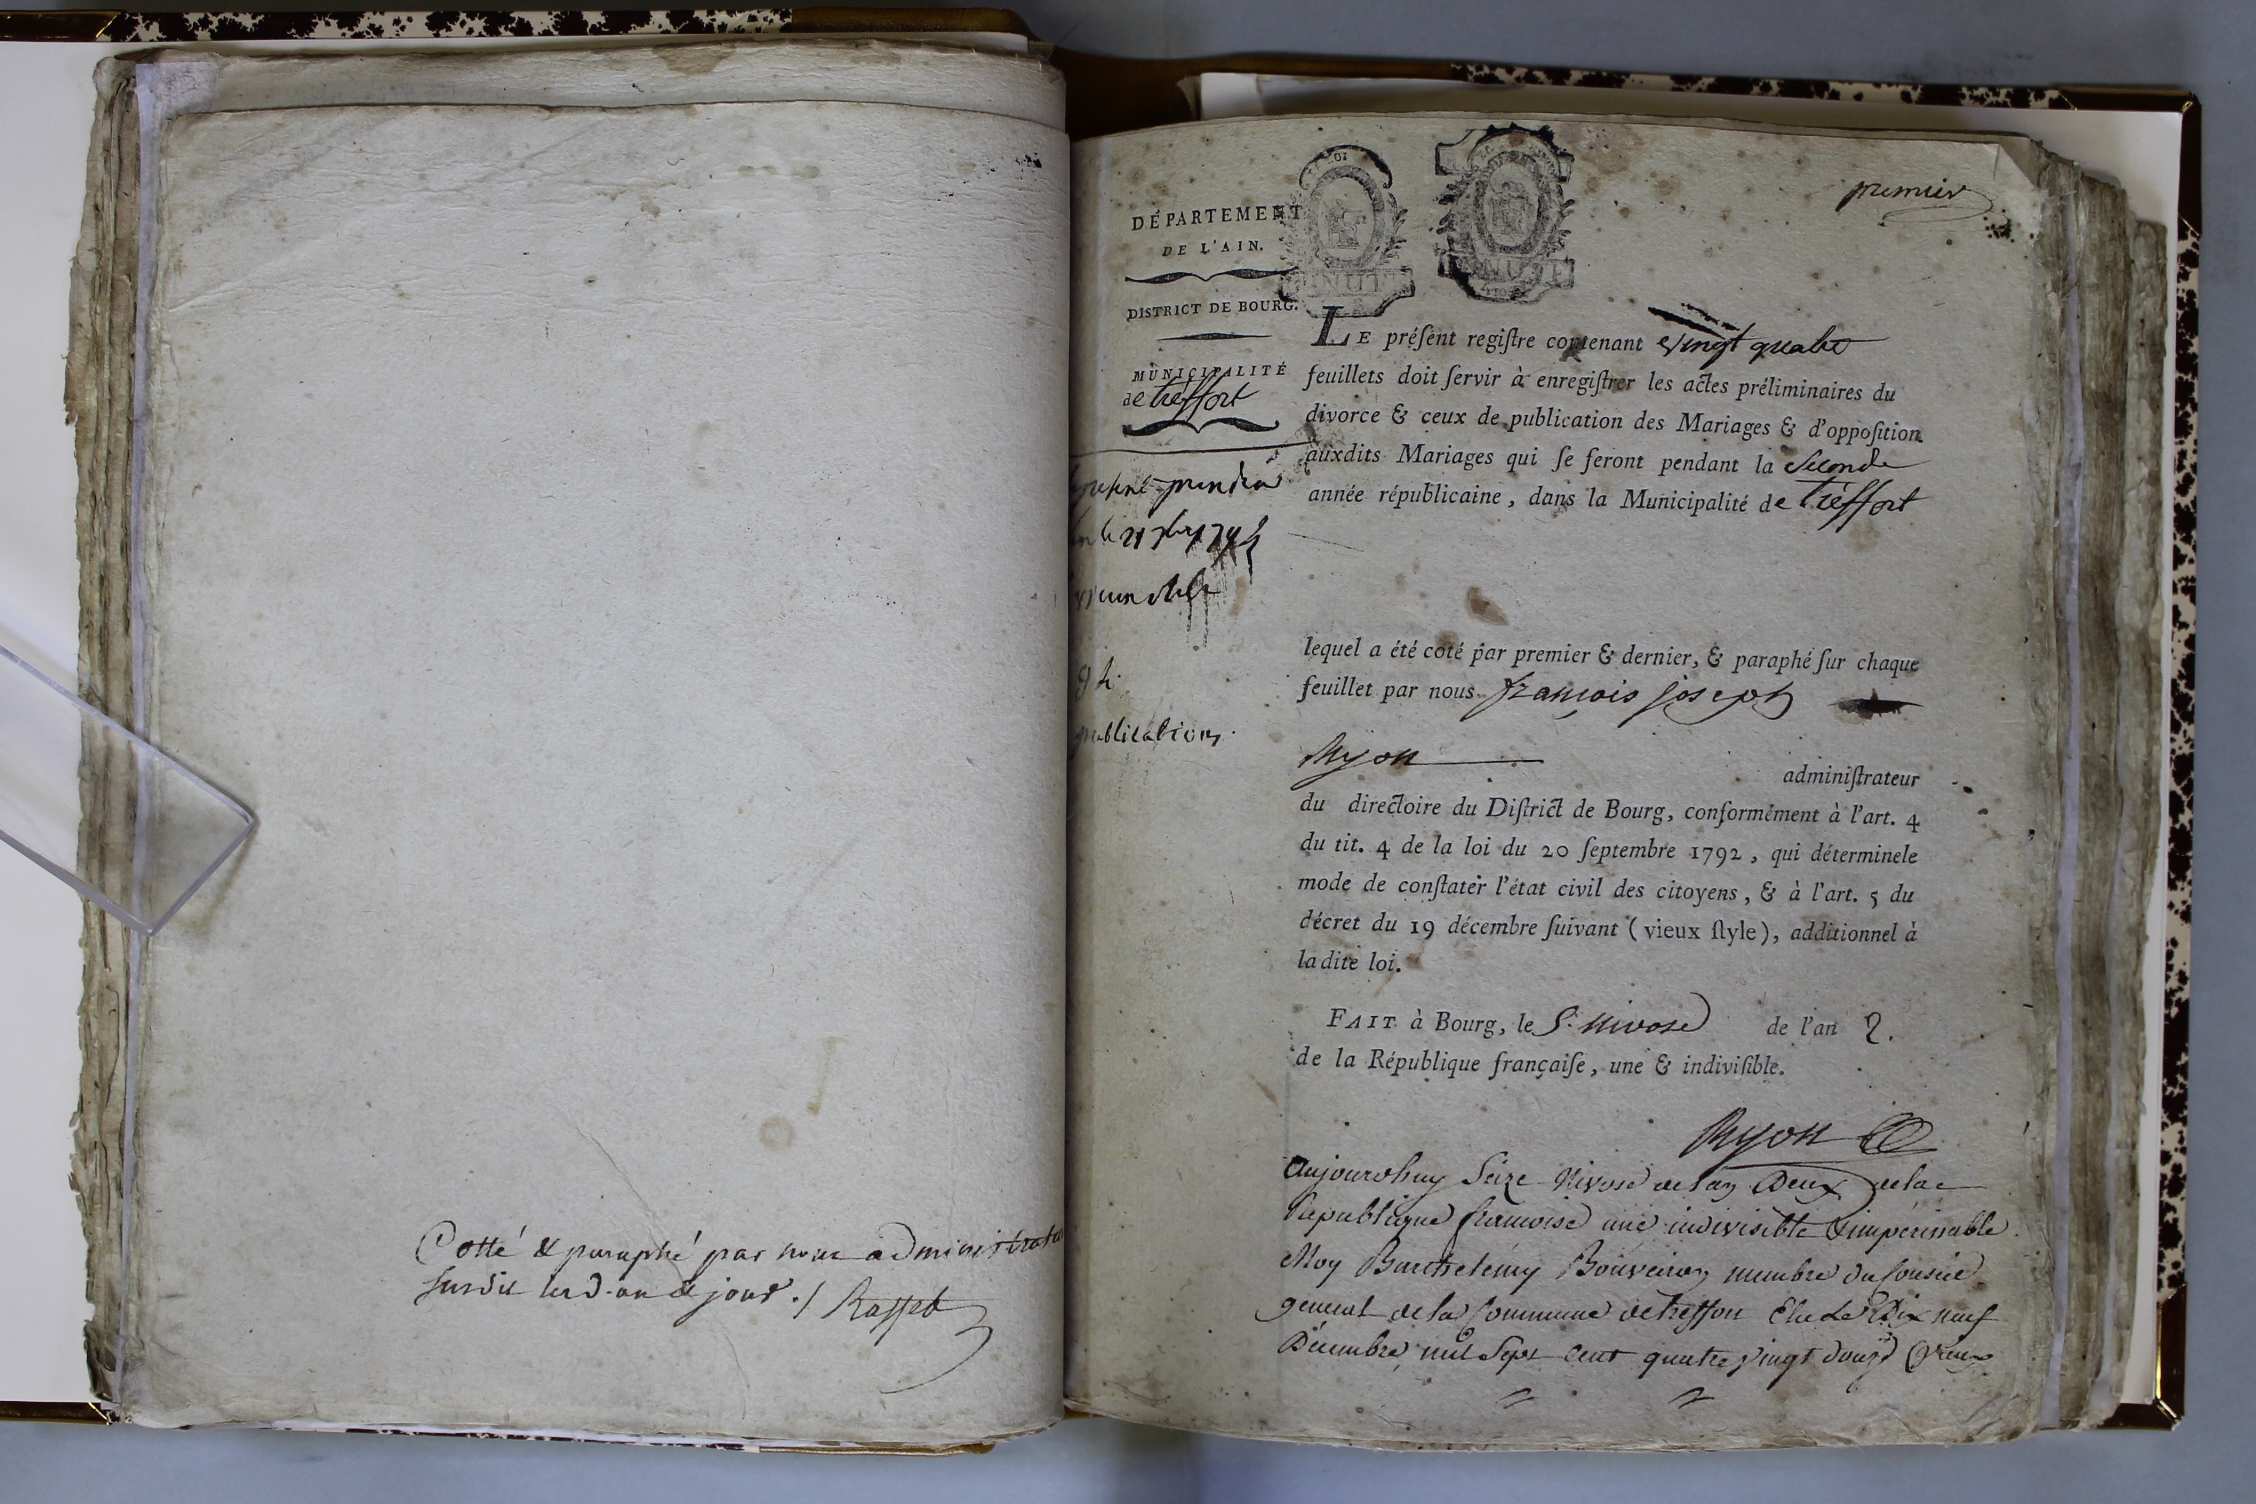 Cotté & paraphé par nous administrateur
susdit lesd. an & jour ./. Rasset
premier
DÉPARTEMENT
DE L'AIN.
DISTRICT DE BOURG.
MUNICIPALITÉ
de Tréffort
publications.
LE préſent regiſtre contenant vingt quatre
feuillets doit ſervir à enregiſtrer les actes préliminaires du
divorce & ceux de publication des Mariages & d'oppoſition
auxdits Mariages qui ſe feront pendant la Seconde
année républicaine, dans la Municipalité de Tréffort
lequel a été coté par premier & dernier, & paraphé ſur chaque
feuillet par nous françois joseph
Ryon
adminiſtrateur
du directoire du Diſtrict de Bourg, conformément à l'art. 4
du tit. 4 de la loi du 20 ſeptembre 1792, qui déterminele
mode de conſtater l'état civil des citoyens, & à l'art. 5 du
décret du 19 décembre ſuivant (vieux ſtyle), additionnel à
ladite loi.
FAIT à Bourg, le 5. nivose de l'an 2.
de la République françaiſe, une & indiviſible.
Ryon
Aujourdhuy Seize Nivose de lan Deux de la
Republique francoise une indivisible & imperissable
Moy Barthelemy Bouveiron membre du Conseil
general de la Commune de treffort Elu Le Dix neuf
Décembre mil Sept cent quatre vingt douze (vieux